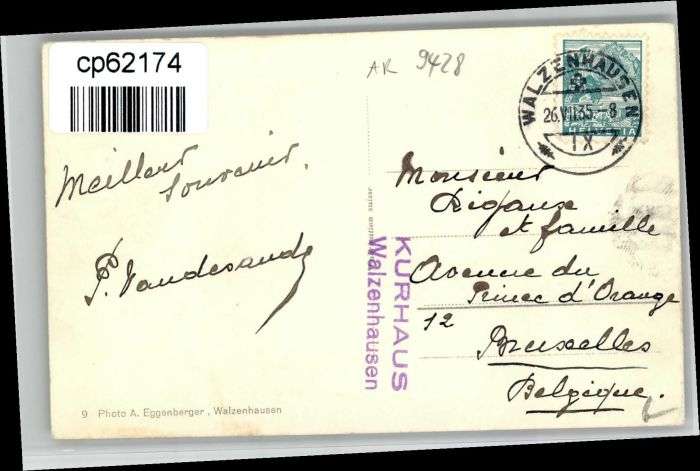 cp62174
AR 9428
WALZENHAUSEN
26.VII.35-8
IX
Meilleur
Souvenir.
P. Vandesande
Monsieur
et famille
Avenue du
Prince d'Orange
12
Bruxelles
Belgique.
KURHAUS
Walzenhausen
9 Photo A. Eggenberger, Walzenhausen